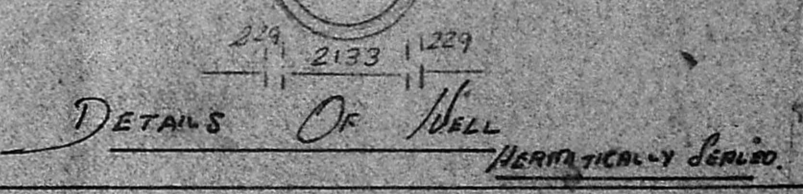 229 2133 229
DETAILS OF WELL
HERMATICALLY SEALED.